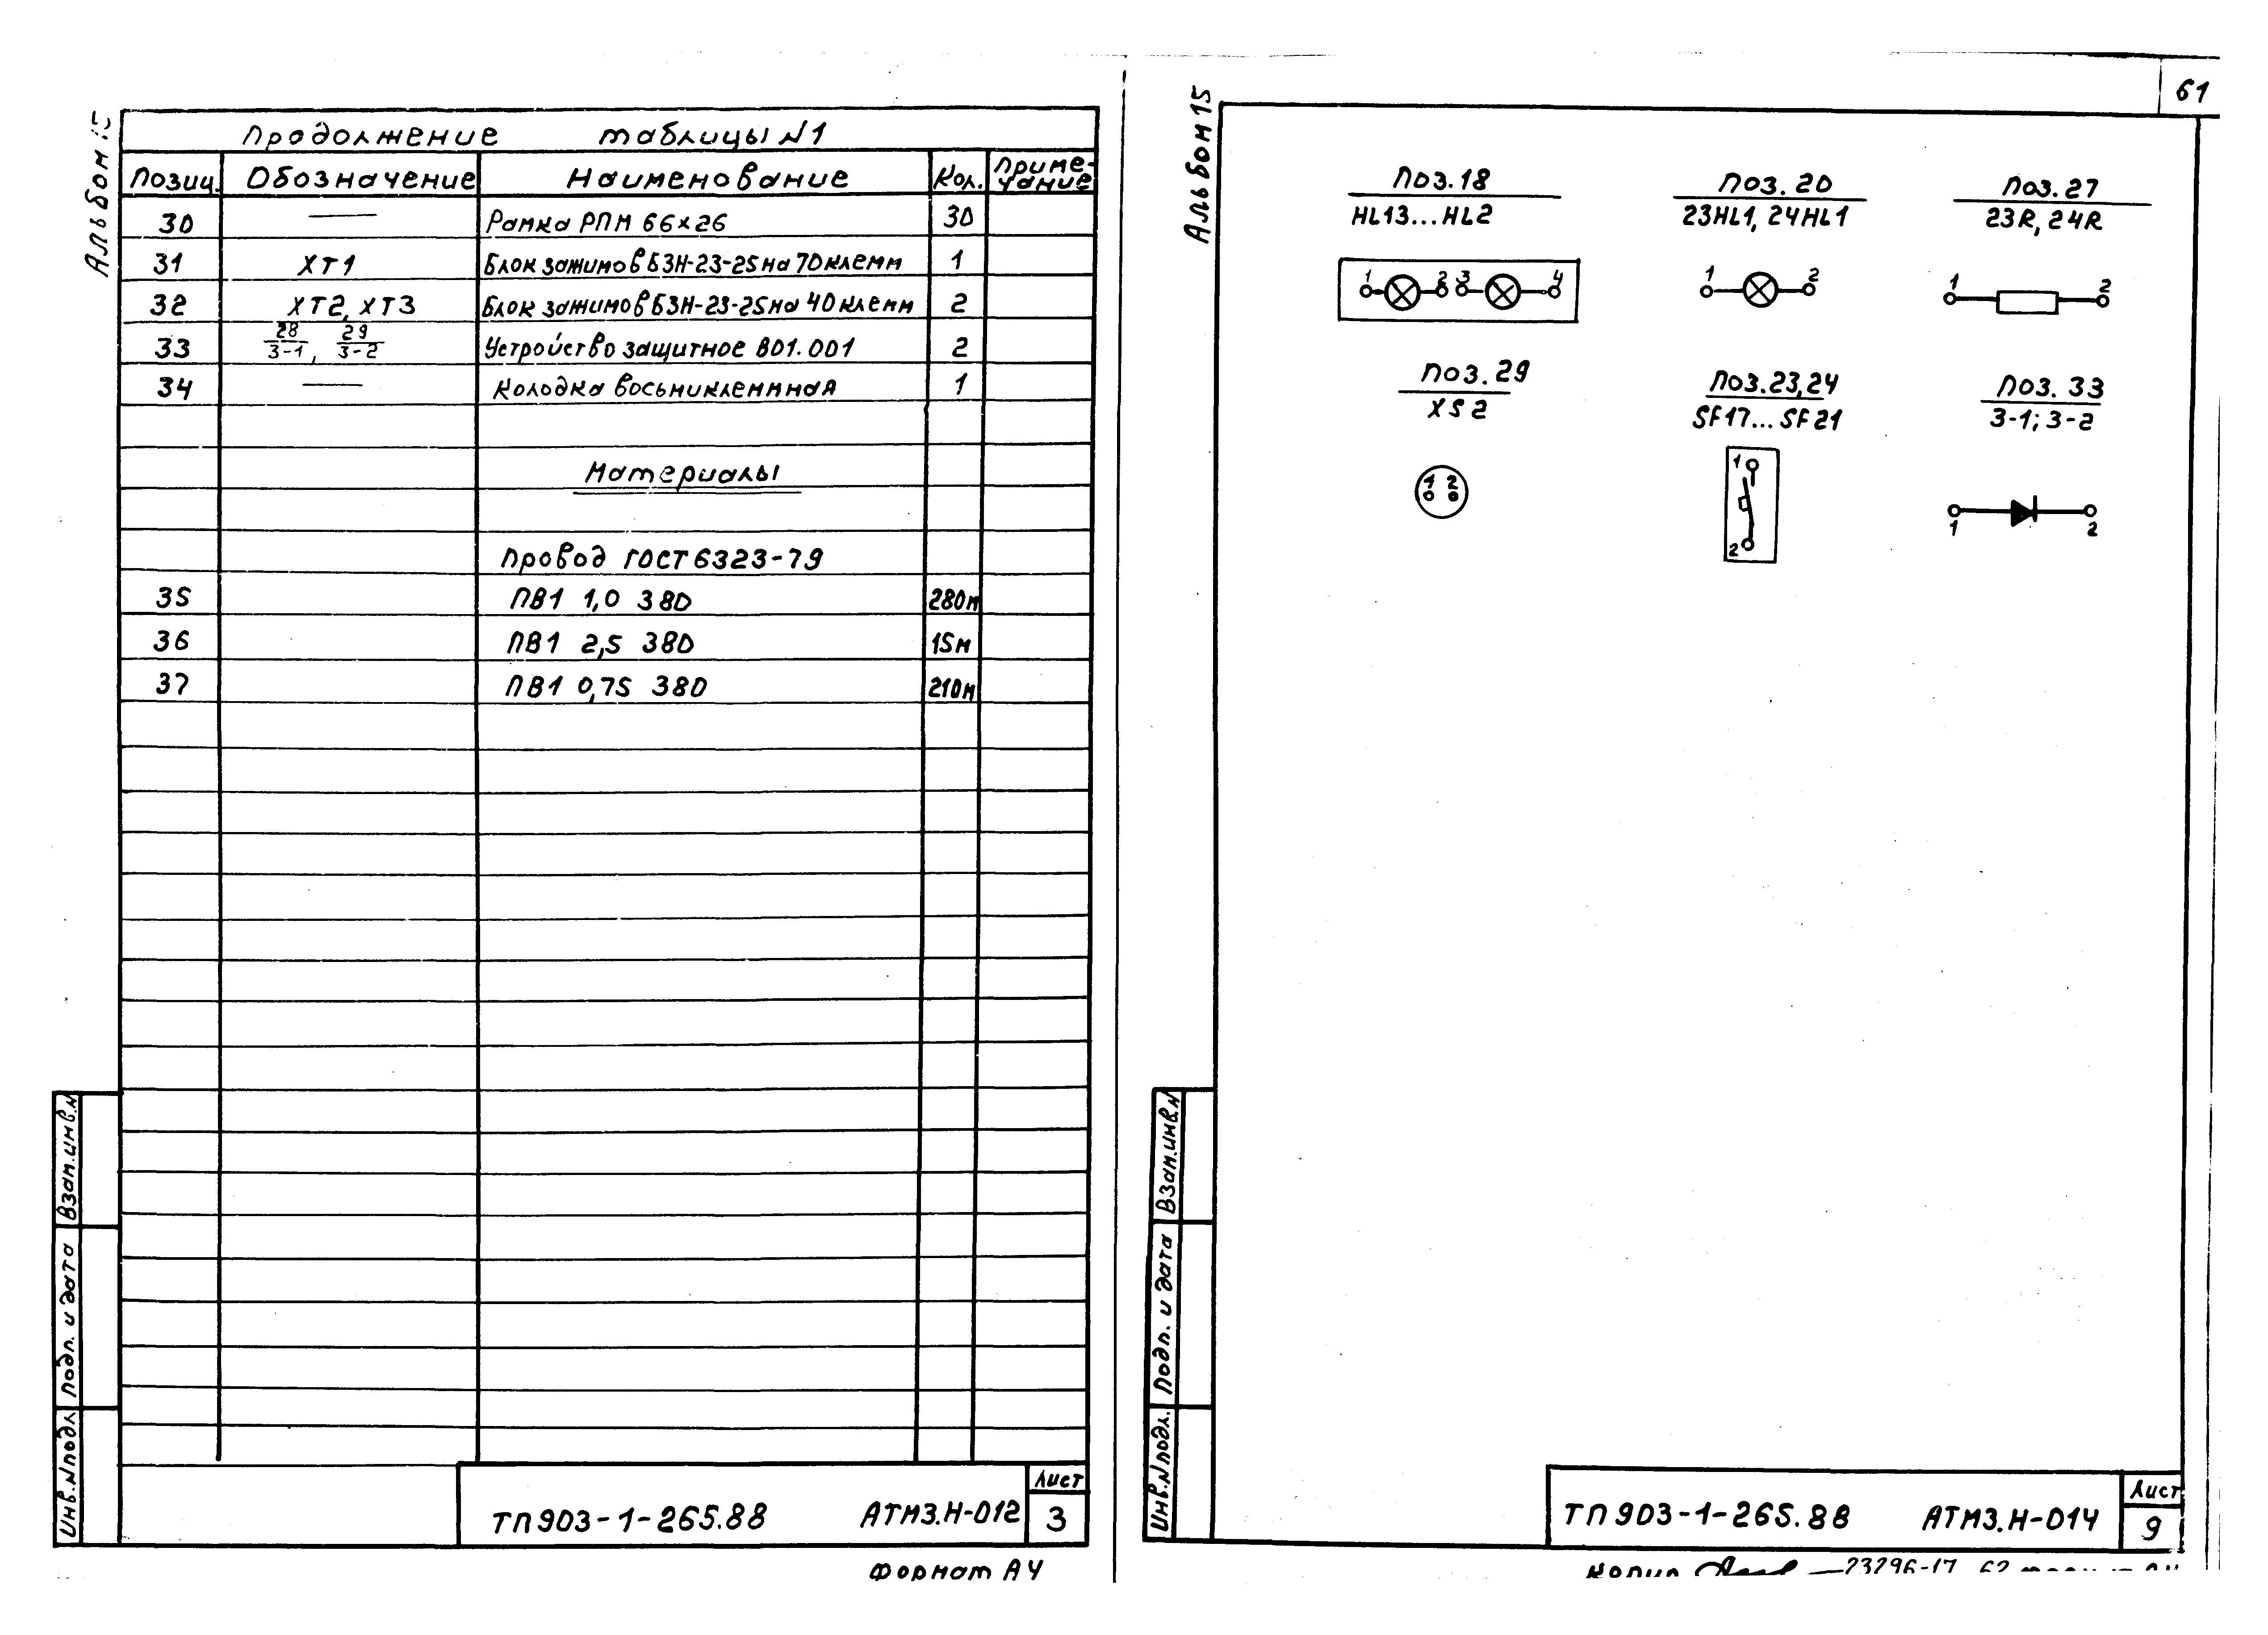 Альбом 15
Продолжение таблицы N1
Позиц. Обозначение Наименование Кол. Приме-
чание
30 — Рамка РПМ 66×26 30
31 XT1 Блок зажимов БЗН-23-25 на 70 клемм 1
32 XT2, XT3 Блок зажимов БЗН-23-25 на 40 клемм 2
33 28/3-1, 29/3-2 Устройство защитное В01.001 2
34 — Колодка восьмиклеммная 1
Материалы
Провод ГОСТ 6323-79
35 ПВ1 1,0 380 280м
36 ПВ1 2,5 380 15м
37 ПВ1 0,75 380 210м
Взам.инв.N
Подп. и дата
Инв.N подл
ТП 903-1-265.88 АТМ3.Н-012
Лист
3
Формат А4
61
Альбом 15
Поз.18
HL13...HL2
1 2 3 4
Поз. 20
23HL1, 24HL1
1 2
Поз. 27
23R, 24R
1 2
Поз. 29
XS2
1 2
Поз.23,24
SF17...SF21
1
2
Поз. 33
3-1; 3-2
1 2
Взам.инв.N
Подп. и дата
Инв.N подл.
ТП 903-1-265.88 АТМ3.Н-014
Лист
9
Копир 23296-17 62